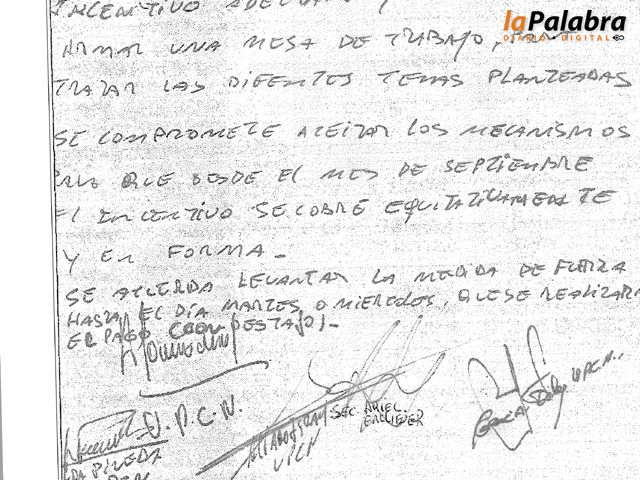 laPalabra
DIARIO DIGITAL
INCENTIVO ADECUADO Y
ARMAR UNA MESA DE TRABAJO, PARA
TRATAR LAS DIFENTES TEMAS PLANTEADAS
SE COMPROMETE ACEITAR LOS MECANISMOS
PARA QUE DESDE EL MES DE SEPTIEMBRE
EL INCENTIVO SE COBRE EQUITATIVAMENTE
Y EN FORMA_
SE ACUERDA LEVANTAR LA MEDIDA DE FUERZA
HASTA EL DÍA MARTES O MIERCOLES, QUE SE REALIZARA
EL PAGO
U.P.C.N.
SEC. ARIEL
UPCN
PINEDA